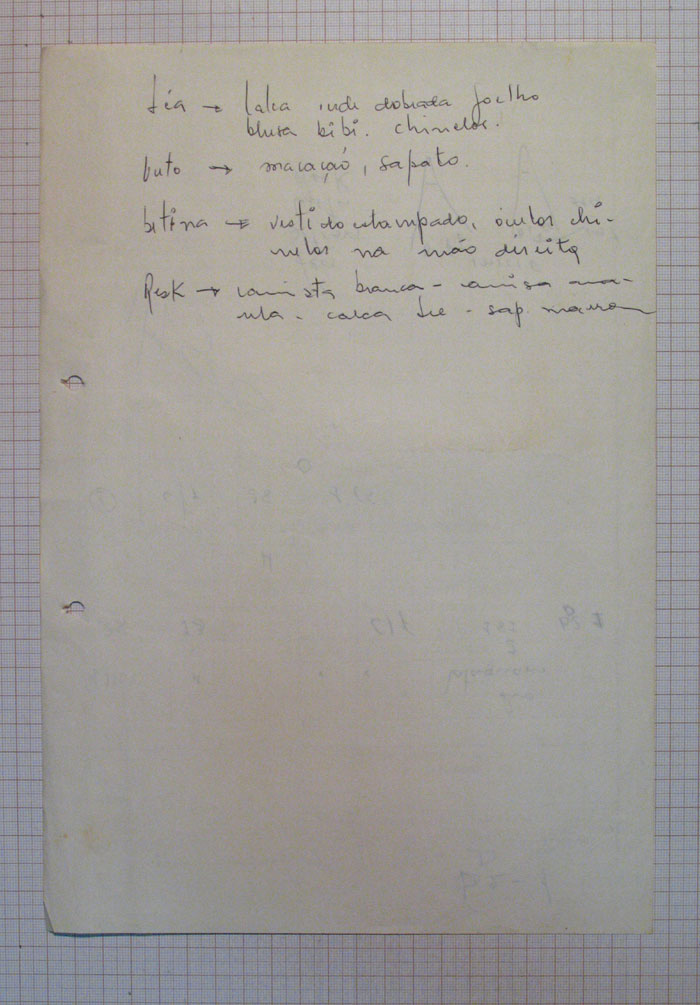 Léa → calca inde dobrada joelho
blusa bibi. chinelos.
buto → macacaõ, sapato.
betina → vestido estampado, óculos chi-
nelos na mão direita
Resk → camiseta branca - camisa ma-
rela - calca - sap. marron